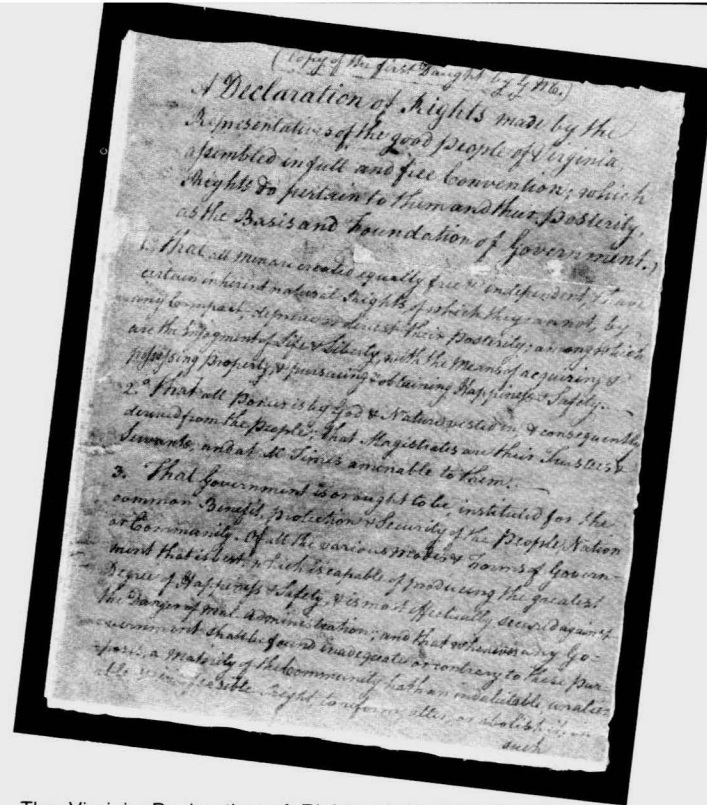 (Copy of the first Daught by G M.)
A Declaration of Rights made by the
Representatives of the good people of Virginia
assembled in full and free Convention; which
Rights do pertain to them and their posterity,
as the Basis and Foundation of Government.)
1. That all men are created equally free & independent, & have
certain inherent natural Rights, of which they cannot, by
any Compact, deprive or divest their Posterity; among which
are the Enjoyment of Life & Liberty, with the Means of acquiring &
possessing property, & pursueing & obtaining Happiness & Safety.
2.d That all Power is by God & Nature vested in, & consequently
derived from the People; that Magistrates are their Trustees &
Servants, and at all Times amenable to them.
3. That Government is or ought to be, instituted for the
common Benefit, protection & Security of the People, Nation
or Community. Of all the various modes & Forms of Govern-
ment that is best, which is capable of producing the greatest
Degree of Happiness & Safety, & is most effectually secured against
the Danger of mal-administration; and that whenever any Go-
vernment shall be found inadequate or contrary to these pur-
poses, a majority of the Community hath an indubitable, unalien-
able & indefeasible Right to reform, alter, or abolish it, in
such